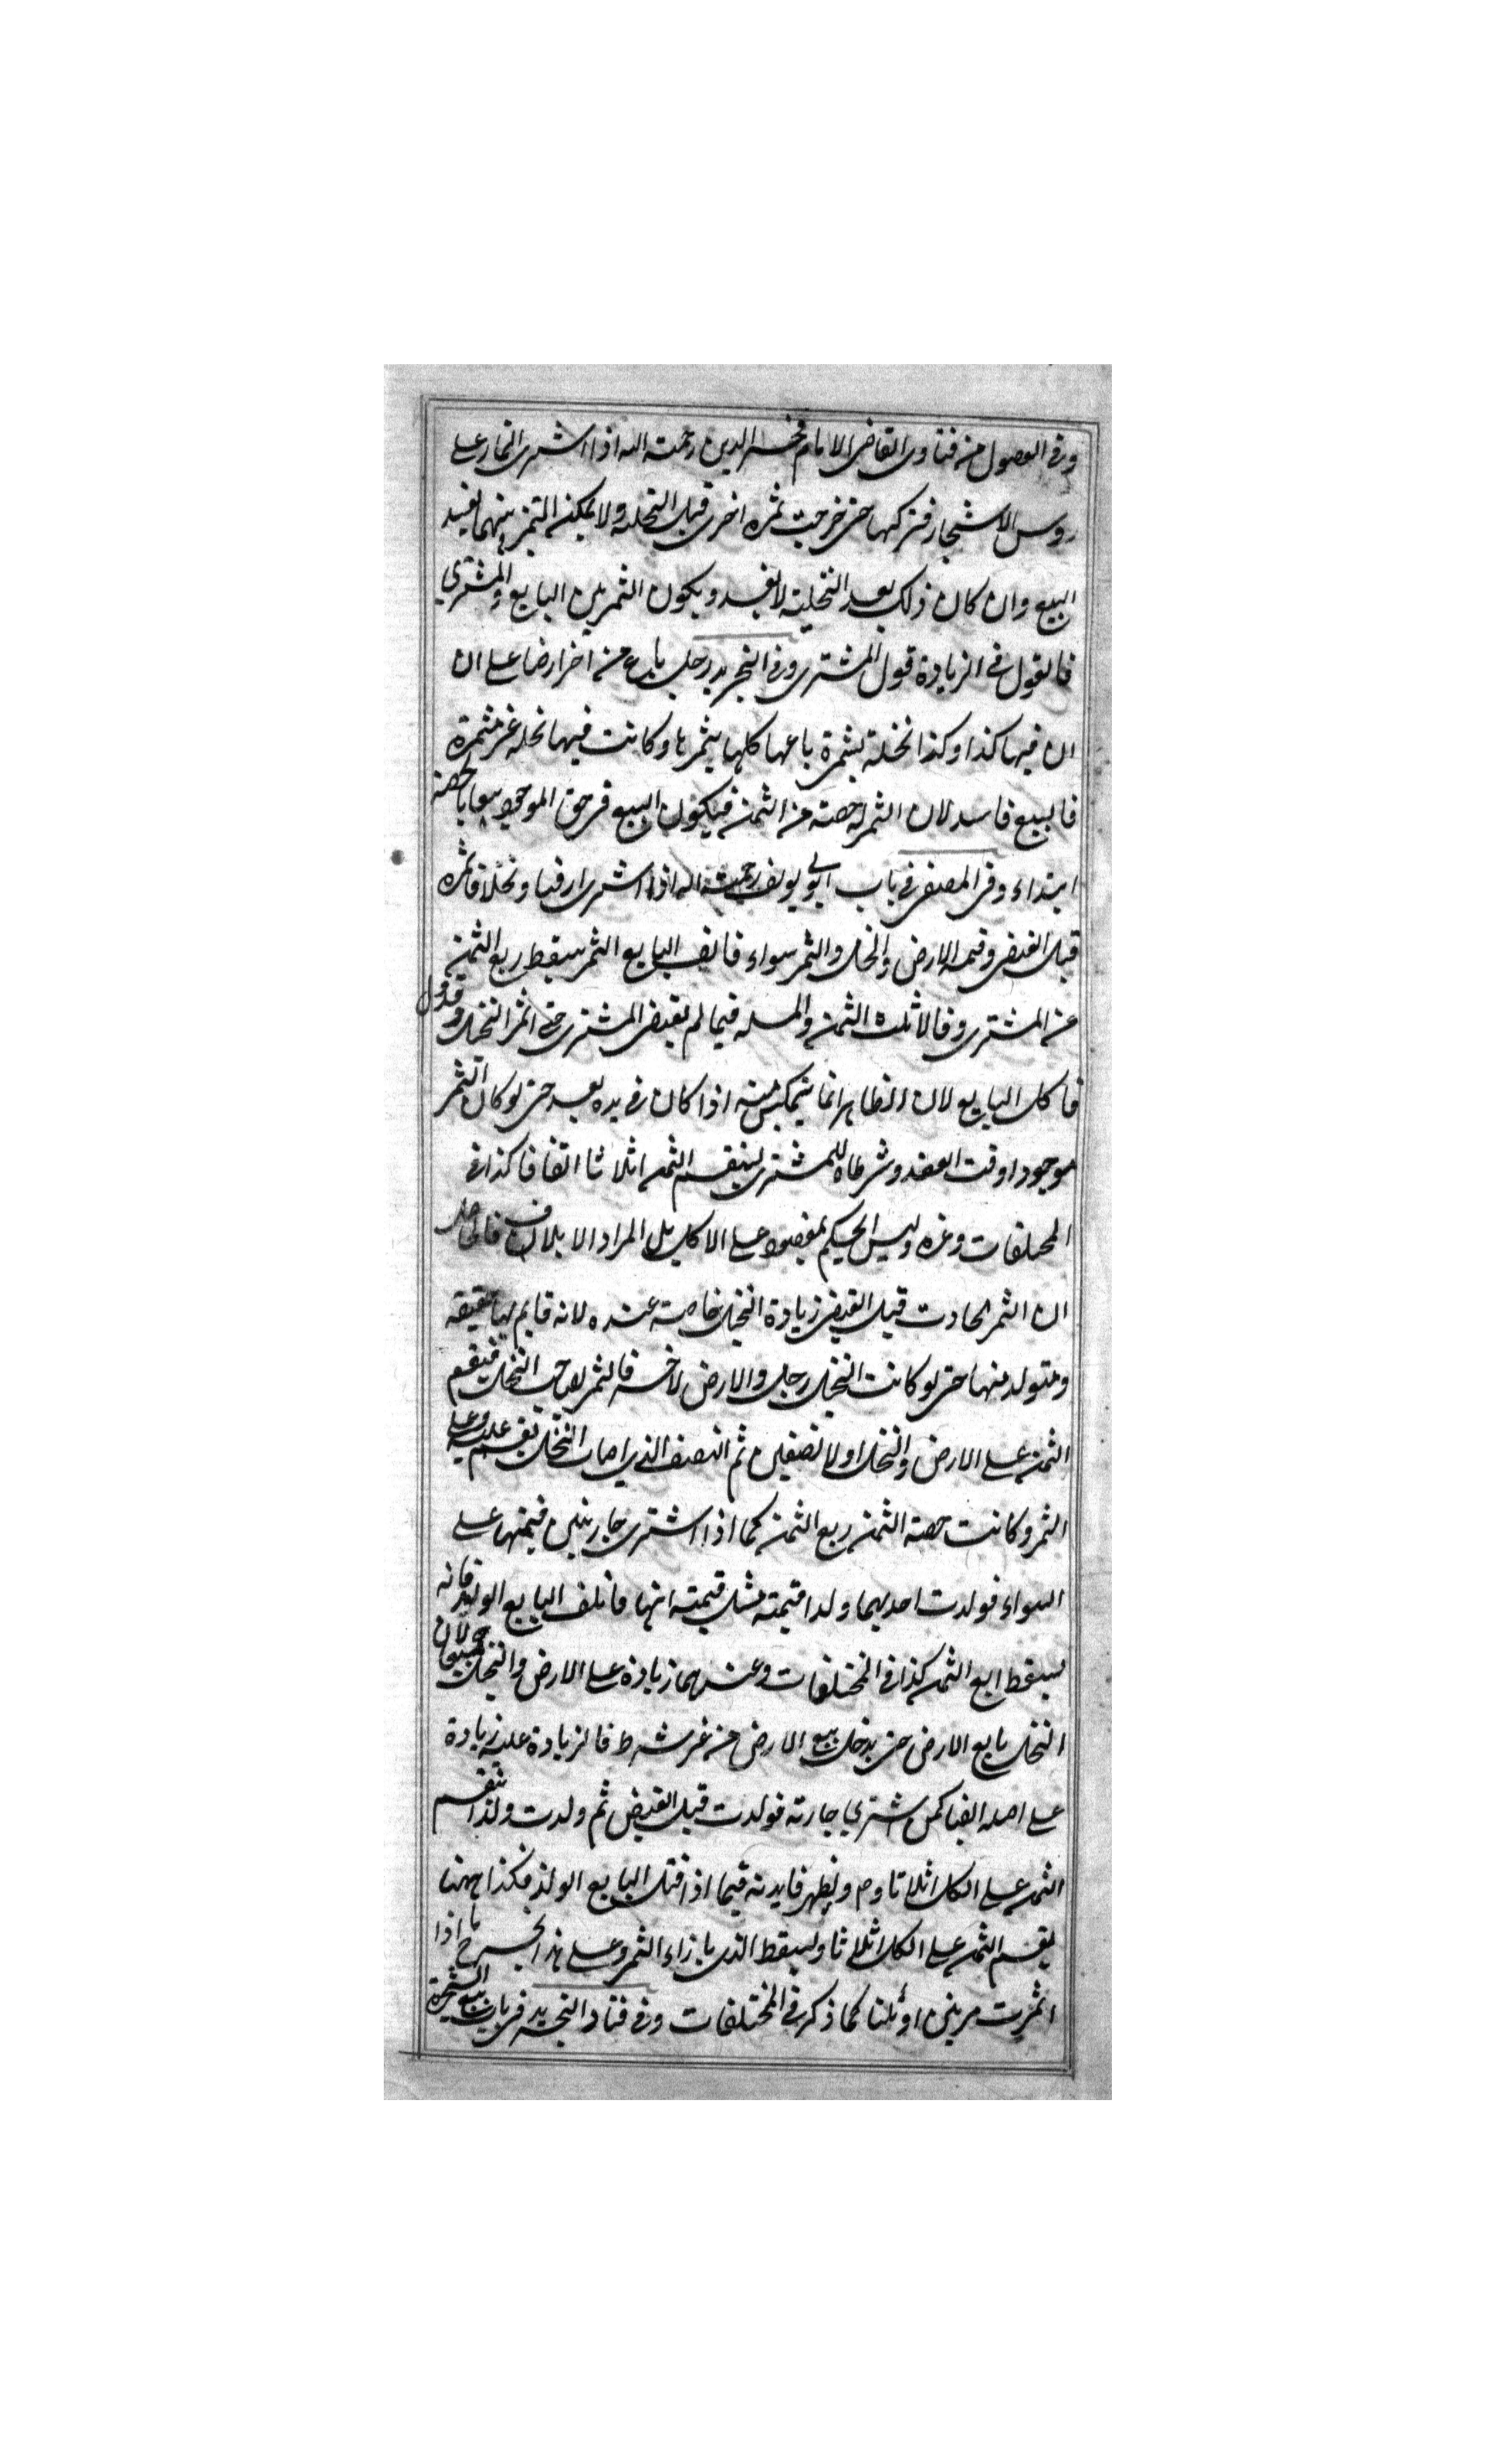 وفى الفصول من فتاوى القاضى الامام فخر الدين رحمته الله اذا اشترى الثمار على
روس الاشجار فتركها حتى خرجت ثمره اخرى قبل التخليه ولا يمكنه التميز بينهما يفسد
البيع وان كان ذلك بعد التخليته لا يفسد ويكون الثمر بين البايع والمشترى
فالقول فى الزيادة قول المشترى وفى التجريد رجل باع من اخر ارضا على ان
ان فيها كذا وكذا نخلة بثمرة باعها كلها بثمرها وكانت فيها نخله غير مثمرة
فالبيع فاسد لان الثمر له حصته من الثمن فيكون البيع فى حق الموجود بيعا بالحصة
ابتداء وفى المصفى فى باب ابى يوسف رحمته الله اذا اشترى ارضا ونخلا فاثمره
قبل القبض وقيمه الارض والنخل والثمر سواء فاتلف البايع الثمر سقط ربع الثمن
عن المشترى وقالا ثلث الثمن والمسله فيما لم يقبض المشترى حتى اثمر النخل وقد
فاكل البايع لان الظاهر انما يتمكن منه اذا كان فى يده بعد حتى لو كان الثمر
موجودا وقت العقد وشرطاه للمشترى ينقسم الثمن اثلاثا اتفاقا كذا فى
المختلفات وغيره وليس الحكم بمقصور على الاكل بل المراد الاتلاف فالحاصل
ان الثمر الحادث قبل القبض زيادة النخل خاصته عنده لانه قايم بها حقيقه
ومتولد منها حتى لو كانت النخل رجل والارض لاخر فالثمر لصاحب النخل فيقسم
الثمن على الارض والنخل اولا نصفين ثم النصف الذى اصاب النخل يقسم عليه وعلى
الثمر وكانت حصته الثمن ربع الثمن كما اذا اشترى جاريتين قيمتها على
السواء فولدت احديهما ولدا قيمته مثل قيمته امها فاتلف البايع الولد فانه
يسقط ربع الثمن كذا فى المختلفات وعندهما زيادة على الارض والنخل جميعا لان
النخل تابع الارض حتى يدخل بيع الارض من غير شرط فالزيادة عليه زيادة
على اصله ايضا كمن اشترى جارته فولدت قبل القبض ثم ولدت ولدا ينقسم
الثمن على الكل اثلاثا وم ويظهر فايدته فيما اذا قتل البايع الولد فكذا ههنا
يقسم الثمن على الكل اثلاثا ويسقط الذى بازاء الثمر وعلى هذا يخرج ما اذا
اثمرت مرتين او ثلثا كما ذكر فى المختلفات وفى فتاوا التجريد فى باب بيع الشجرة